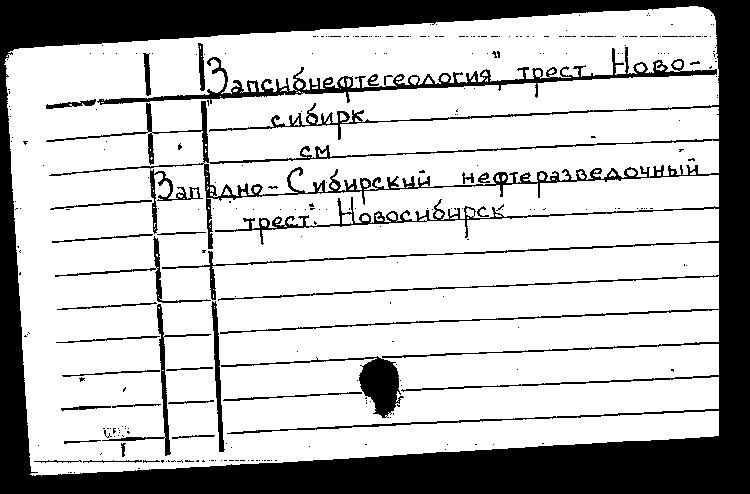 "Запсибнефтегеология", трест. Ново-
сибирк.
см
Западно-Сибирский нефтеразведочный
трест". Новосибирск